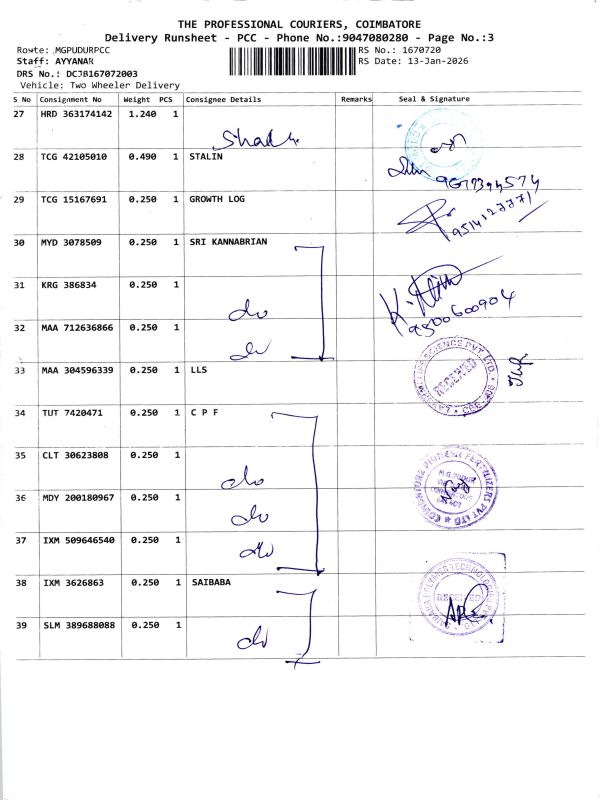 THE PROFESSIONAL COURIERS, COIMBATORE
Delivery Runsheet - PCC - Phone No.:9047080280 - Page No.:3
Route: MGPUDURPCC
RS No.: 1670720
Staff: AYYANAR
RS Date: 13-Jan-2026
DRS No.: DCJB167072003
Vehicle: Two Wheeler Delivery
S No Consignment No Weight PCS Consignee Details Remarks Seal & Signature
27 HRD 363174142 1.240 1
28 TCG 42105010 0.490 1 STALIN
29 TCG 15167691 0.250 1 GROWTH LOG
30 MYD 3078509 0.250 1 SRI KANNABRIAN
31 KRG 386834 0.250 1
do
9500600904
32 MAA 712636866 0.250 1
do
33 MAA 304596339 0.250 1 LLS
RECEIVED
34 TUT 7420471 0.250 1 C P F
35 CLT 30623808 0.250 1
do
36 MDY 200180967 0.250 1
do
37 IXM 509646540 0.250 1
do
38 IXM 3626863 0.250 1 SAIBABA
RECEIVED
39 SLM 389688088 0.250 1
do